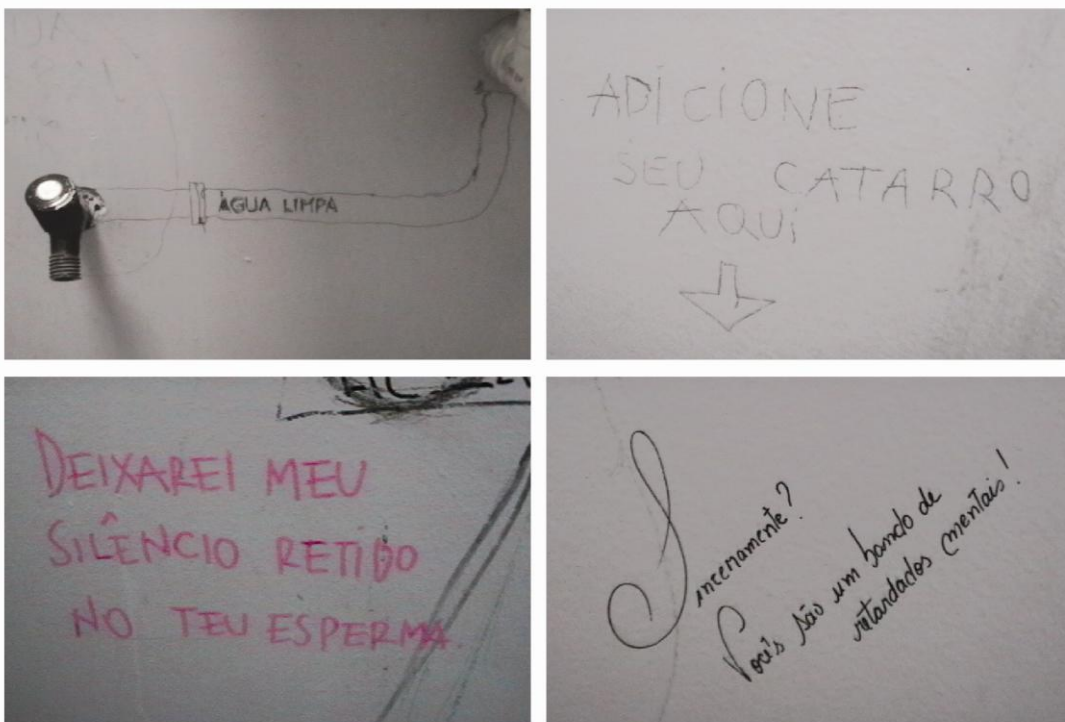 ÁGUA LIMPA
ADICIONE
SEU CATARRO
AQUI
DEIXAREI MEU
SILÊNCIO RETIDO
NO TEU ESPERMA
Sinceramente?
Vocês são um bando de
retardados mentais!